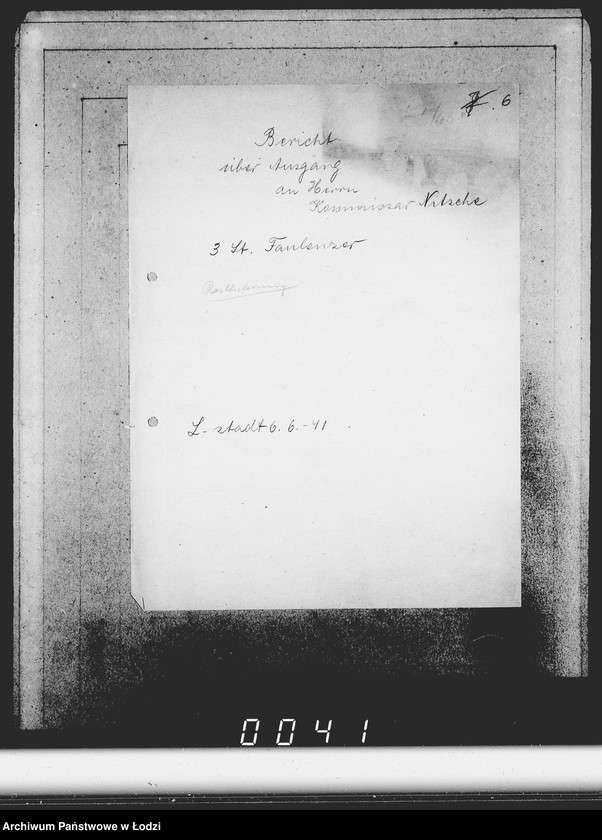 6
Bericht
über Ausgang
an Herrn
Kommissar Nitsche
3 St. Faulenzer
L-stadt 6. 6.-41
0041
Archiwum Państwowe w Łodzi